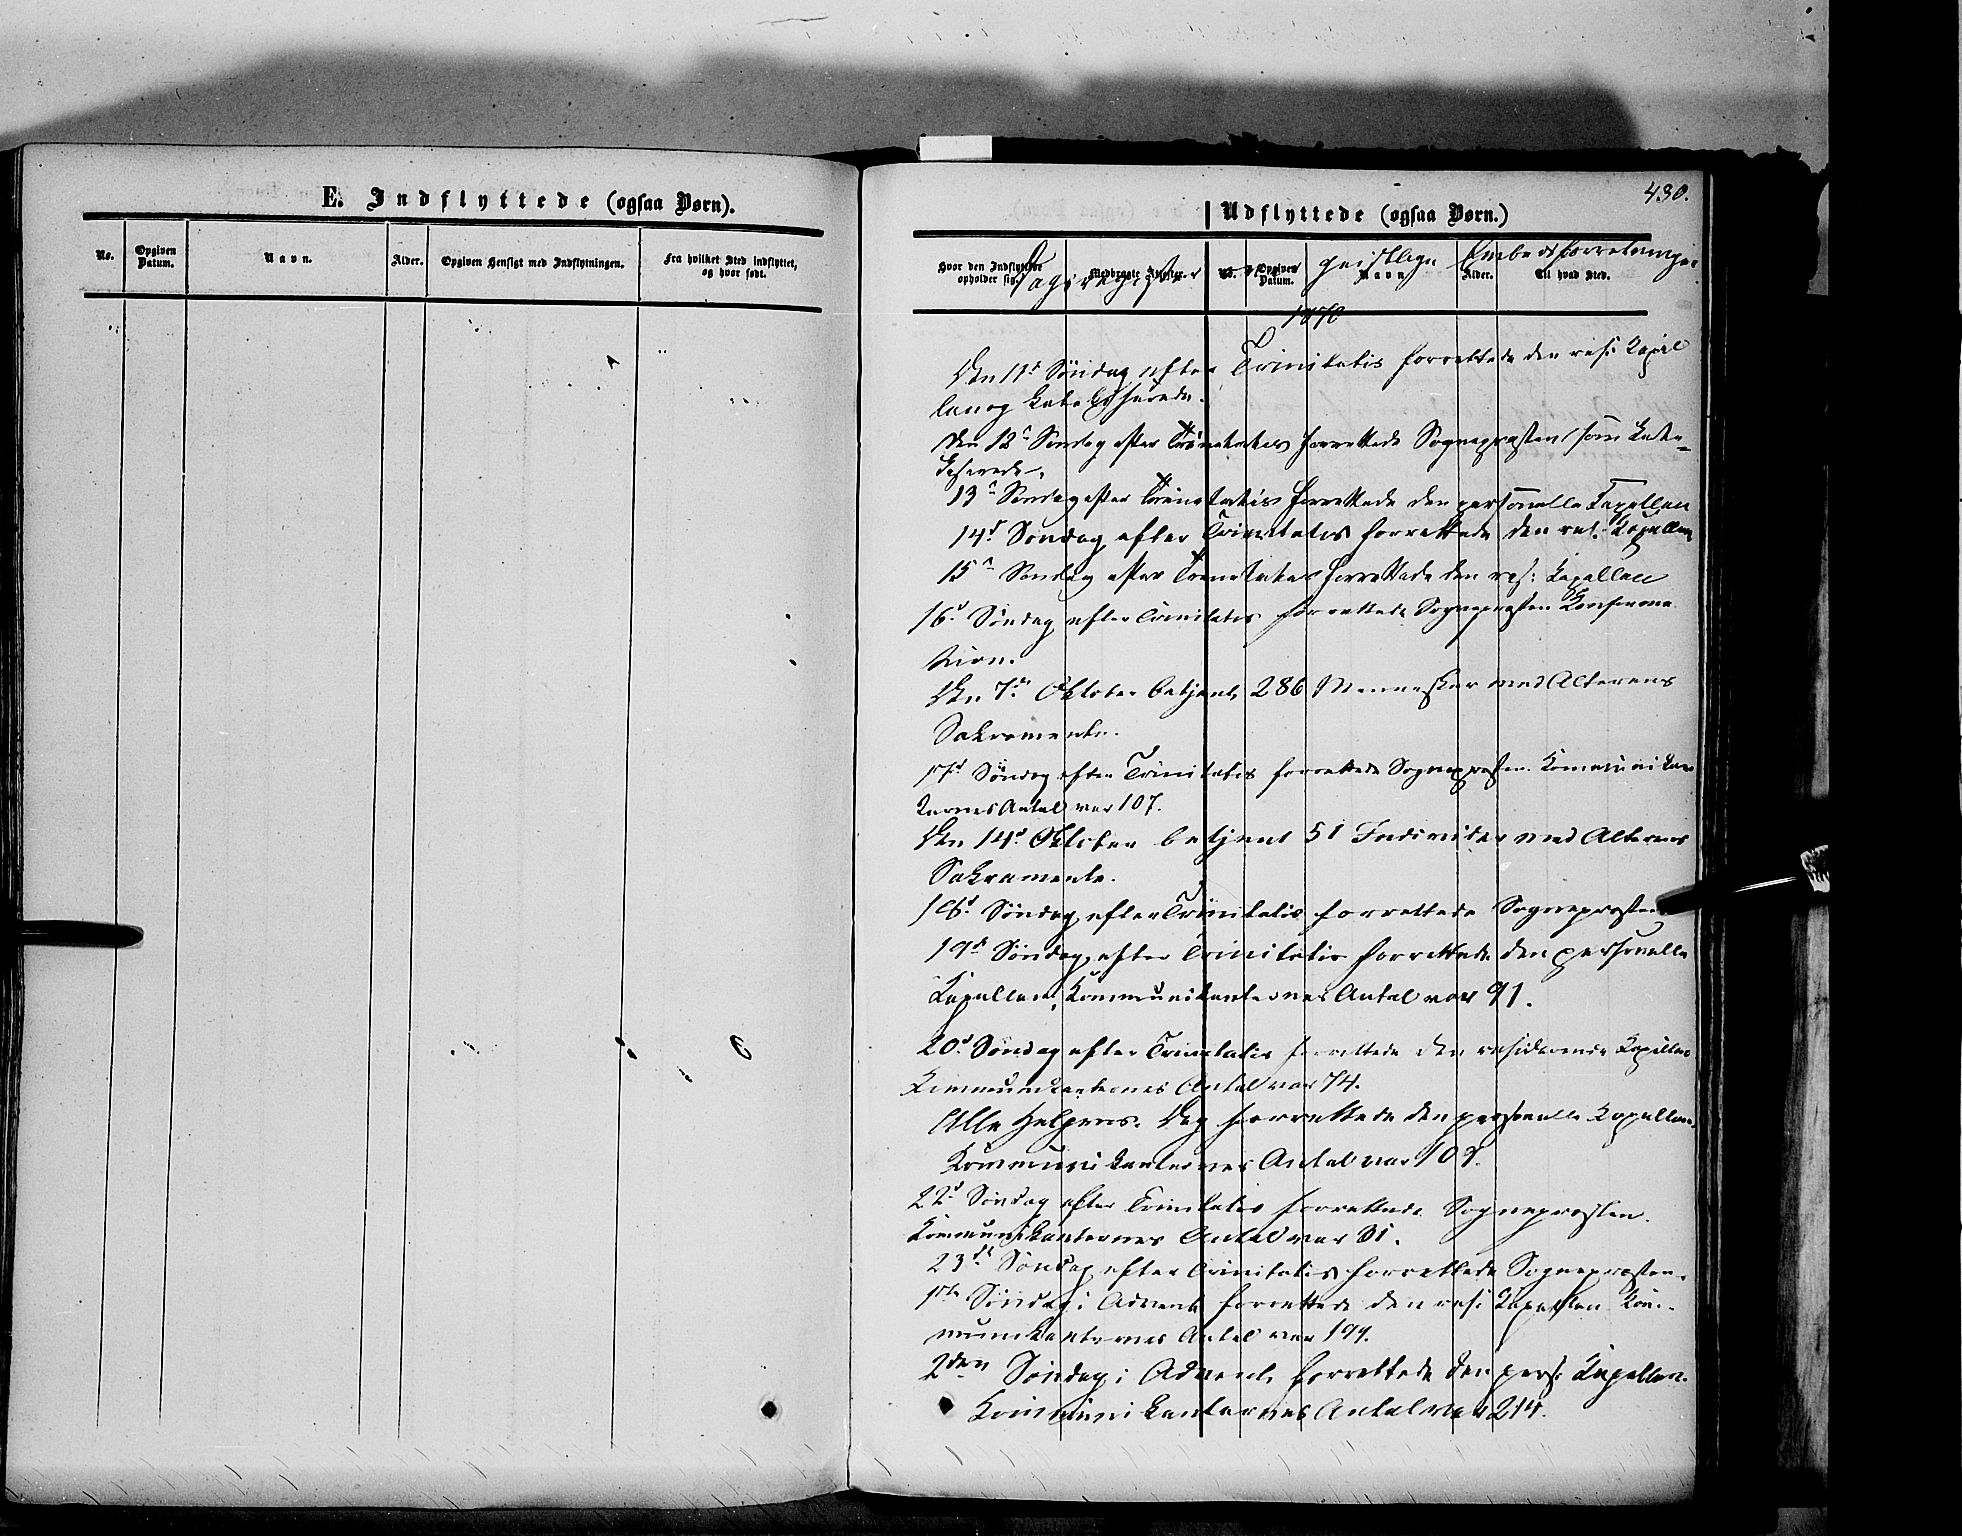 E. Indflyttede (ogsaa Børn).
No.
Opgiven Datum.
Navn.
Alder.
Opgiven Hensigt med Indflytningen.
Fra hvilket Sted indflyttet, og hvor født.
430.
Udflyttede (ogsaa Børn.)
Hvor den Indflyttede opholder sig.
Medbragte Attester.
No.
Opgiven Datum.
Navn.
Alder.
Til hvad Sted.
Dagsregister over geistlige Embedsforretninger
1870
Den 11te Søndag efter Trinitatis forrettede den res: Kapel
lan og katekiserede.
Den 12te Søndag efter Trinitatis forrettede Sognepræsten som kate-
kiserede.
13de Søndag efter Trinitatis forrettede den personelle Kapellan
14de Søndag efter Trinitatis forrettede den res. Kapellan
15de Søndag efter Trinitatis forrettede den res: Kapellan
16de Søndag efter Trinitatis forrettede Sognepræsten Konfirma
tion.
Den 7de Oktober betjent 286 Mennesker med Alterens
Sakramente.
17de Søndag efter Trinitatis forrettede Sognepræsten. Kommunikan
ternes Antal var 107.
Den 14de Oktober betjent 51 Individer med Alterens
Sakramente.
18de Søndag efter Trinitatis forrettede Sognepræsten
19de Søndag efter Trinitatis forrettede den personelle
Kapellan, Kommunikanternes Antal var 91.
20de Søndag efter Trinitatis forrettede den residerende Kapellan
Kommunikanternes Antal var 74.
Alle Helgens Dag forrettede den personelle Kapellan.
Kommunikanternes Antal var
22de Søndag efter Trinitatis forrettede Sognepræsten.
Kommunikanternes Antal var 31.
23de Søndag efter Trinitatis forrettede Sognepræsten.
1ste Søndag i Advent forrettede den res: Kapellan Kom-
munikanternes Antal var
2den Søndag i Advent forrettede den pers: Kapellan.
Kommunikanternes Antal var 214.